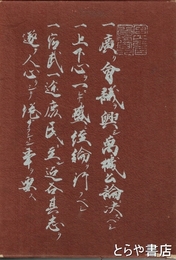 一廣ク會議ヲ興シ萬機公論ニ決スヘシ
一上下心ヲ一ニシテ盛ニ經綸ヲ行フヘシ
一官武一途庶民ニ至ル迄各其志ヲ
遂ケ人心ヲシテ倦マサラシメン事ヲ要ス
とらや書店